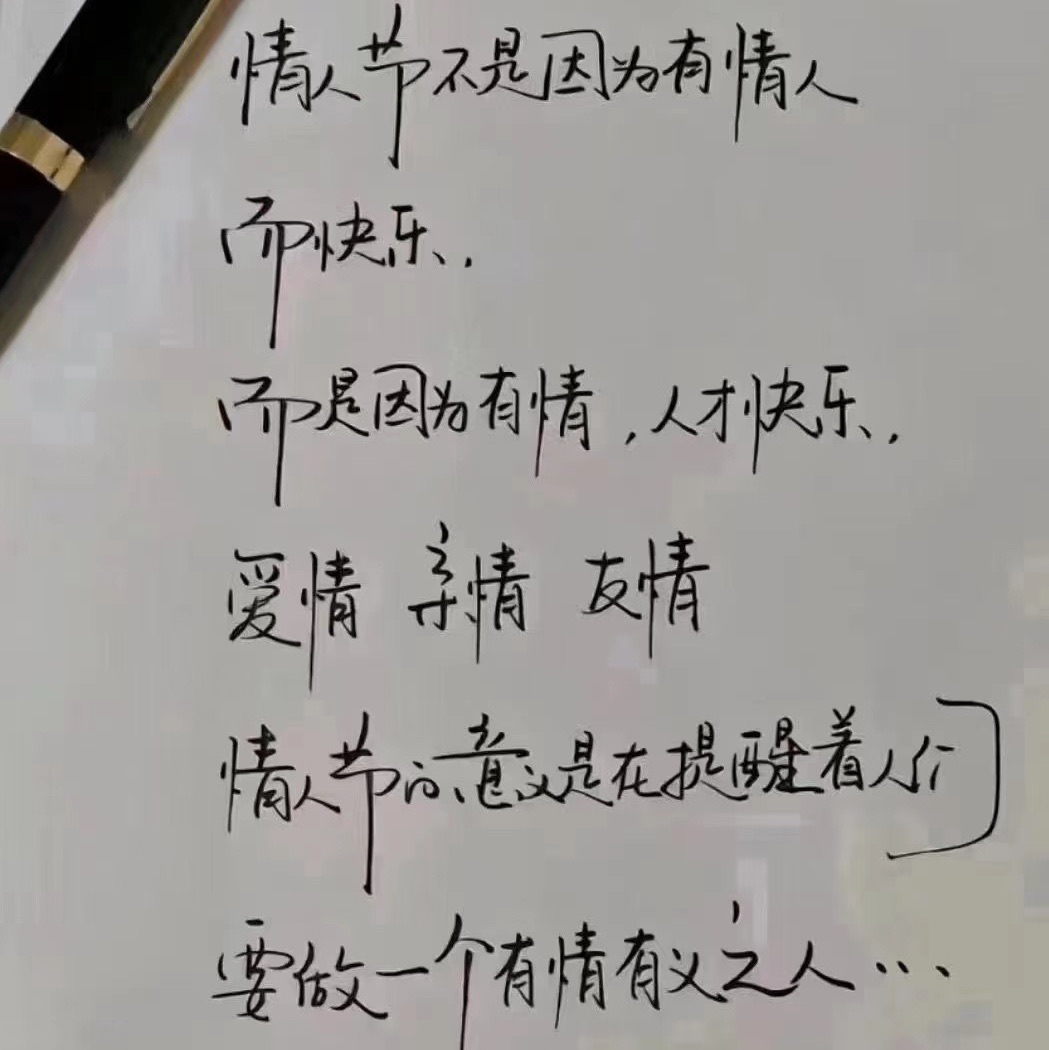 情人节不是因为有情人
而快乐.
而是因为有情,人才快乐,
爱情 亲情 友情
情人节的意义是在提醒着人们
要做一个有情有义之人…